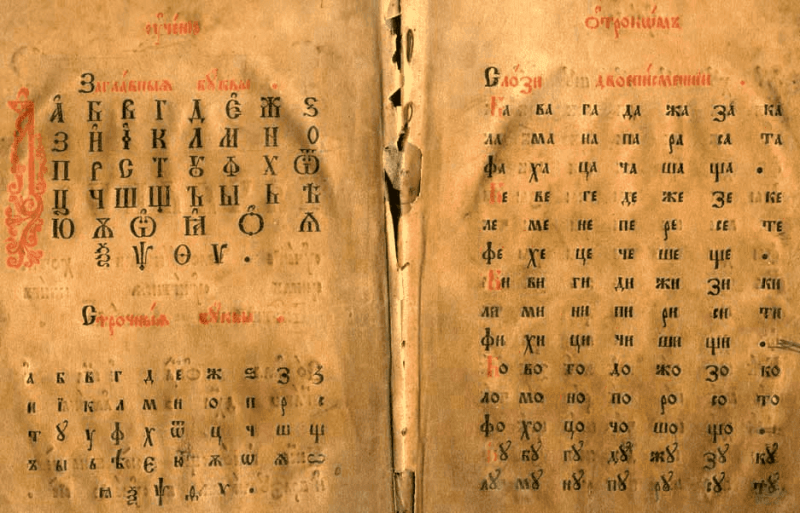 ᲂу҆че́нїе
Заглавныѧ бꙋквы .
А Б В Г Д Е Ж Ѕ
З И І К Л М Н О
П Р С Т Ꙋ Ф Х Ѿ
Ц Ч Ш Щ Ъ Ы Ь Ѣ
Ю Ѫ Ѡ Ꙗ Ѻ Ѧ
Ѯ Ѱ Ѳ Ѵ .
Строчныѧ бꙋквы .
а б в г д е ж ѕ З з
и ї к л м н о п р с
т ꙋ у ф х ѿ ц ч ш щ
ъ ы ь ѣ є ю ѫ ѡ ѧ
ꙗ ѯ ѱ ѳ ѵ .
Ѻтрокѡмъ
Слози двоеписменнїи .
Ба ва га да жа за ка
ла ма на па ра са та
фа ха ца ча ша ща .
Бе ве ге де же зе ке
ле ме не пе ре се те
фе хе це че ше ще .
Би ви ги ди жи зи ки
ли ми ни пи ри си ти
фи хи ци чи ши щи .
Бо во го до жо зо ко
ло мо но по ро со то
фо хо цо чо шо що .
Бꙋ вꙋ гꙋ дꙋ жꙋ зꙋ кꙋ
лꙋ мꙋ нꙋ пꙋ рꙋ сꙋ тꙋ